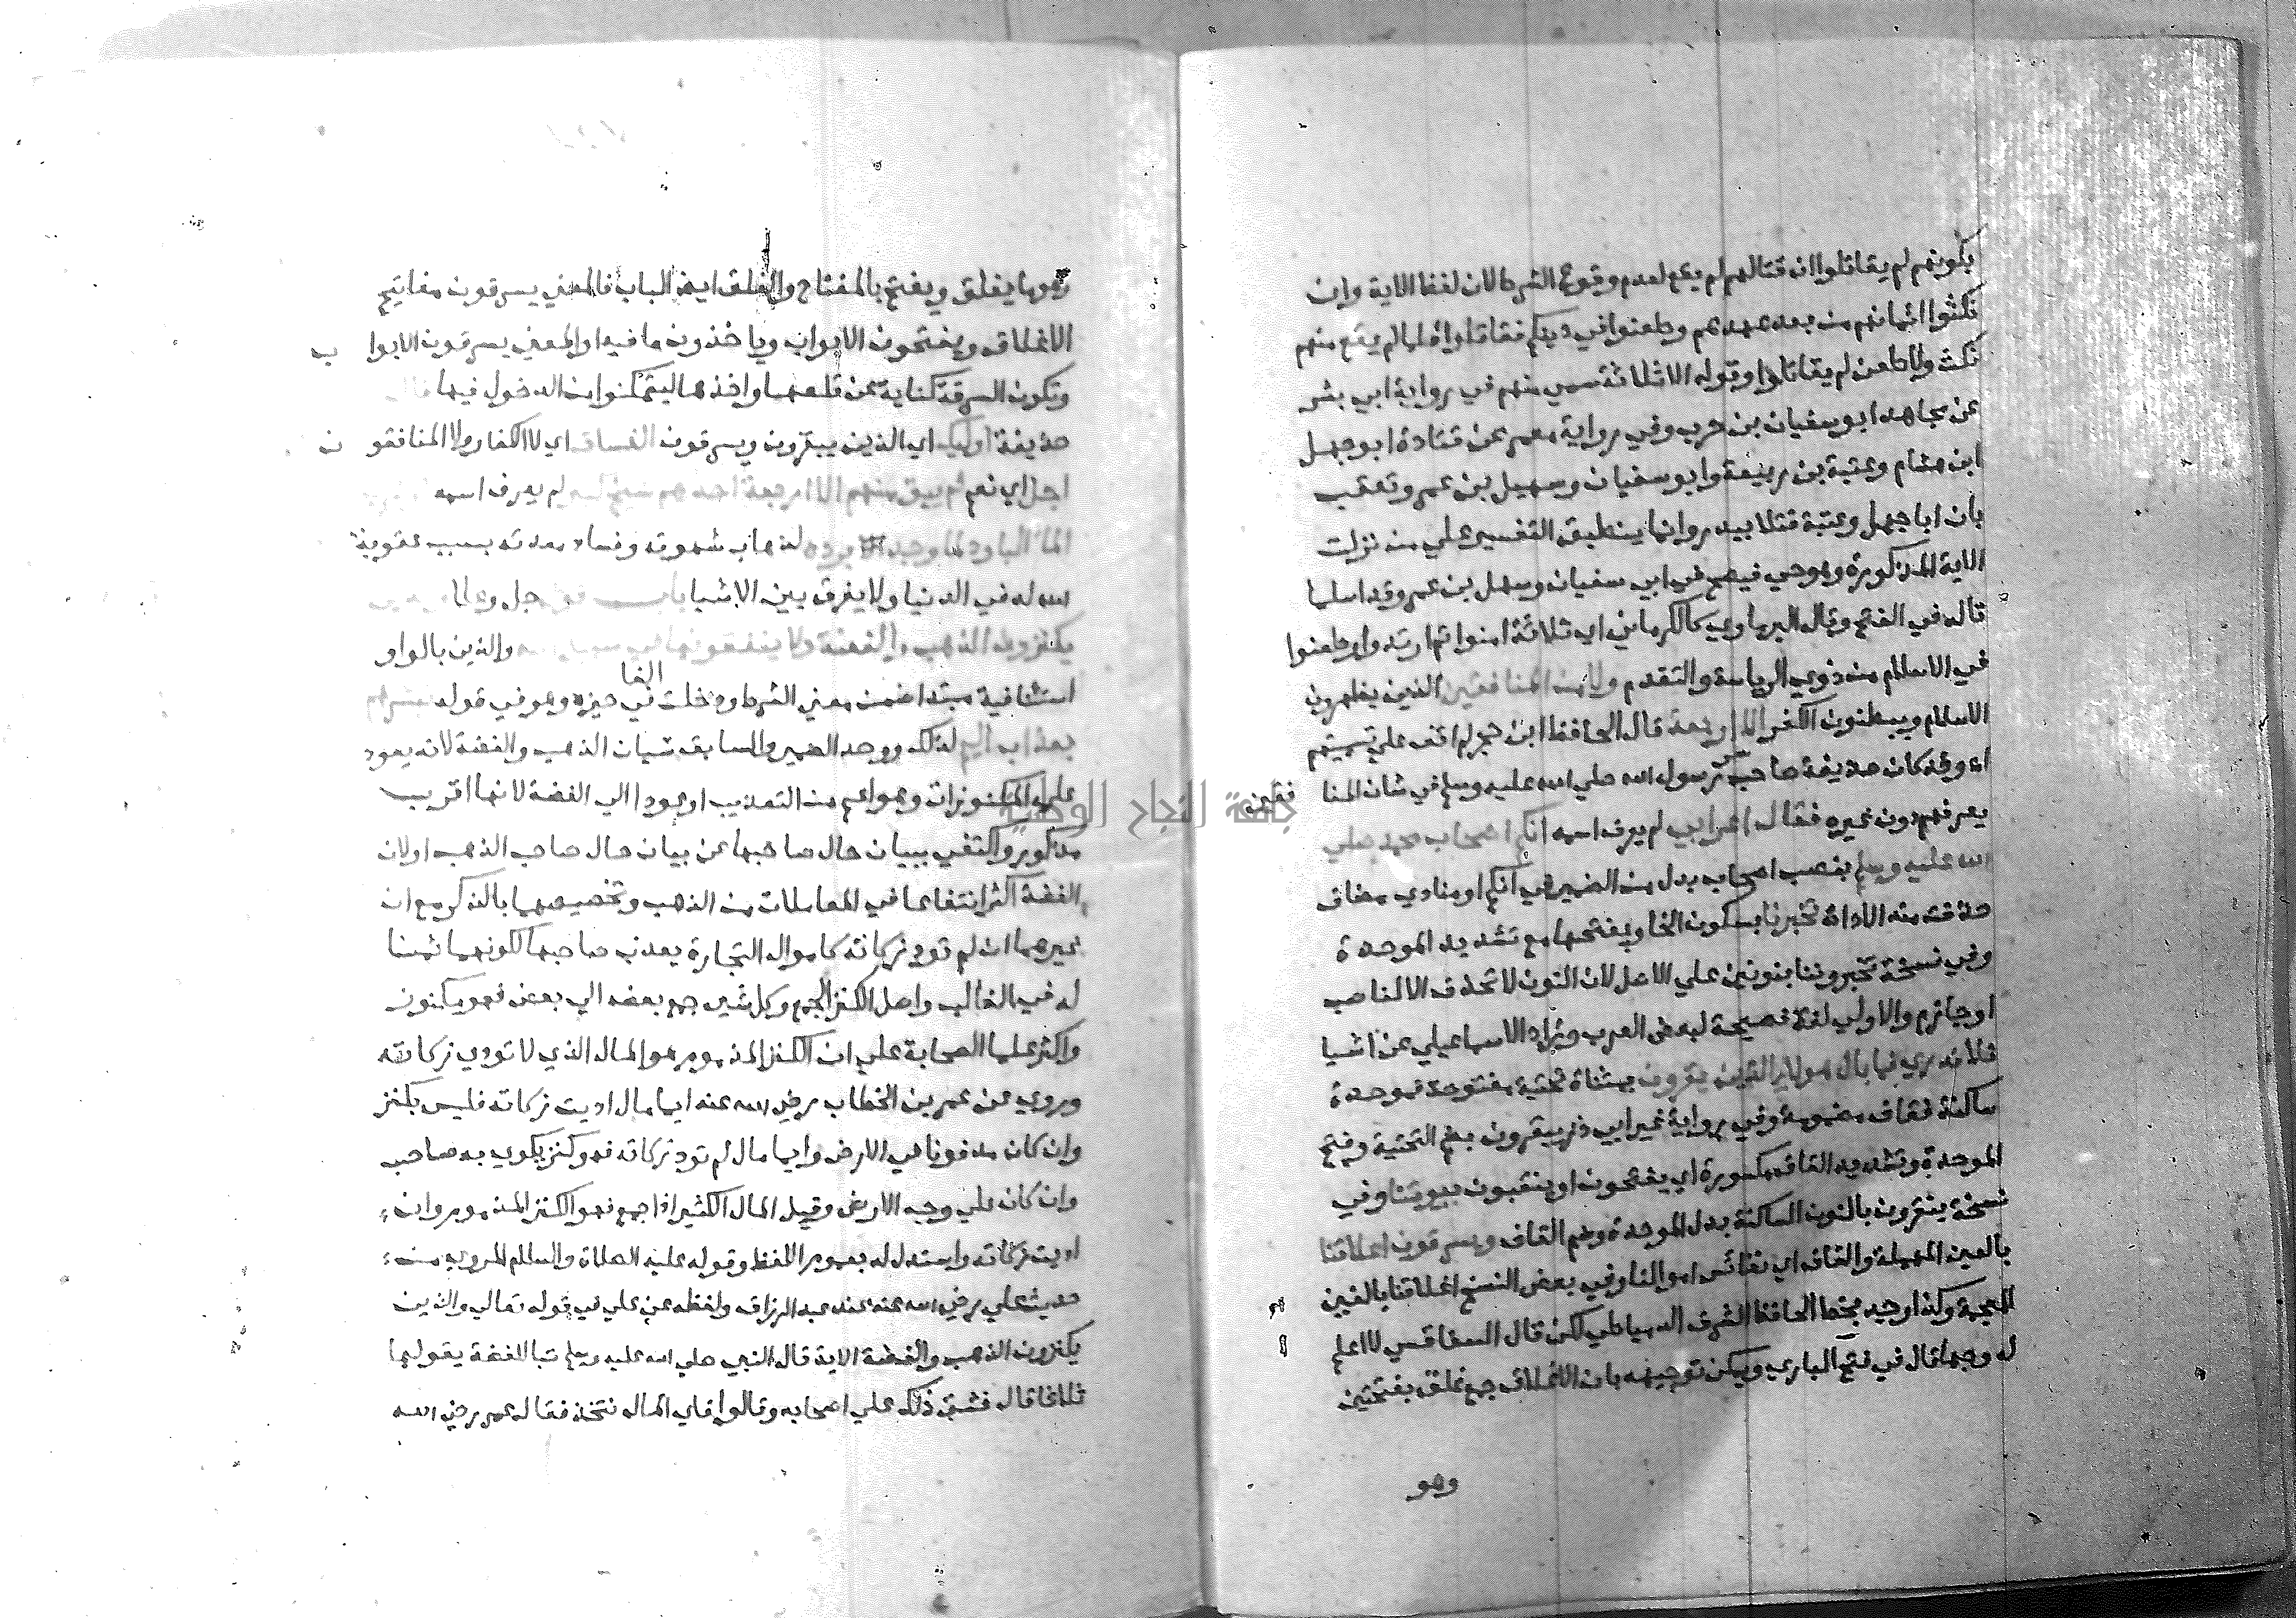 بكونهم لم يقاتلوا ان قتالهم لم يقع لعدم وقوع الشرط لان لفظ الاية وان
نكثوا ايمانهم من بعد عهدهم وطعنوا في دينكم فقاتلوا فلما لم يقع منهم
نكث ولا طعن لم يقاتلوا وقوله الا ثلاثة سمي منهم في رواية ابي بشر
عن مجاهد ابو سفيان بن حرب وفي رواية معمر عن قتادة ابو جهل
ابن هشام وعتبة بن ربيعة وابو سفيان وسهيل بن عمرو وتعقب
بان ابا جهل وعتبة قتلا ببدر وانما ينطبق التفسير علي من نزلت
الاية المذكورة وهو حي فيصح في ابي سفيان وسهيل بن عمرو وقد اسلما
قاله في الفتح وقال البرماوي كالكرماني اي ثلاثة امنوا ثم ارتدوا وطعنوا
في الاسلام من ذوي الرياسة والتقدم ولا من المنافقين الذين يظهرون
الاسلام ويبطنون الكفر الا اربعة قال الحافظ ابن حجر لم اقف علي تسميتهم
اه وقد كان حذيفة صاحب سر رسول الله صلي الله عليه وسلم في شان المنافقين
يعرفهم دون غيره فقال اعرابي لم يعرف اسمه انكم اصحاب محمد صلي
الله عليه وسلم بنصب اصحاب بدل من الضمير في انكم او منادي مضاف
حذفت منه الاداة تخبرنا بسكون الخا ويفتحها مع تشديد الموحدة
وفي نسخة تخبروننا بنونين علي الاصل لان النون لا تحذف الا لناصب
او جازم والاولي لغة فصيحة لبعض العرب وزاد الاسماعيلي عن اشيا
فلا ندري فما بال هولاء الذين يبقرون بمثناة تحتية مفتوحة فموحدة
ساكنة فقاف مضمومة وفي رواية غير ابي ذر يبقرون بضم التحتية وفتح
الموحدة وتشديد القاف مكسورة اي يفتحون او ينقبون بيوتنا وفي
نسخة ينقرون بالنون الساكنة بدل الموحدة وضم القاف ويسرقون اعلاقنا
بالعين المهملة والقاف اي نفائس اموالنا وفي بعض النسخ اغلاقنا بالغين
المعجمة وكذا وجد بخط الحافظ الشرف الدمياطي لكن قال السفاقسي لا اعلم
له وجها قال في فتح الباري ويمكن توجيهه بان الاغلاق جمع غلق بفتحتين
وهو
وهو ما يغلق ويفتح بالمفتاح والغلق ايضا الباب فالمعني يسرقون مفاتيح
الاغلاق ويفتحون الابواب وياخذون ما فيها او المعني يسرقون الابواب
وتكون السرقة كناية عن قلعها واخذها ليتمكنوا من الدخول فيها قال
حذيفة اوليك اي الذين يبقرون ويسرقون الفساق اي لا الكفار ولا المنافقون
اجل اي نعم لم يبق منهم الا اربعة احدهم شيخ لم يعرف اسمه
الما البارد لما وجد برده لذهاب شهوته وفساد معدته بسبب عقوبة
الله له في الدنيا ولا يفرق بين الاشيا جل وعلا
يكنزون الذهب والفضة ولا ينفقونها في سبيل الله والذين بالواو
استئنافية مبتدا ضمن معني الشرط ودخلت الفا في حيزه وهو في قوله فبشرهم
بعذاب اليم لذلك ووحد الضمير والسابق شيان الذهب والفضة لانه يعود
علي المكنوزات وهو اعم من التعذيب او عودا الي الفضة لانها اقرب
مذكور واكتفي ببيان حال صاحبها عن بيان حال صاحب الذهب اولان
الفضة اكثر انتفاعا في المعاملات من الذهب وتخصيصهما بالذكر مع ان
غيرهما ان لم تود زكاته كاموال التجارة يعذب صاحبها لكونهما ثمنا
له في الغالب واصل الكنز الجمع وكل شي جمع بعضه الي بعض فهو مكنون
واكثر علما الصحابة علي ان الكنز المذموم هو المال الذي لا تودي زكاته
وروي عن عمر بن الخطاب رضي الله عنه ايما مال اديت زكاته فليس بكنز
وان كان مدفونا في الارض وايما مال لم تود زكاته فهو كنز يكوي به صاحبه
وان كان علي وجه الارض وقيل المال الكثير اذا جمع فهو الكنز المذموم وان
اديت زكاته واستدل له بعموم اللفظ وقوله عليه الصلاة والسلام المروي من
حديث علي رضي الله عنه عند عبد الرزاق ولفظه عن علي في قوله تعالي والذين
يكنزون الذهب والفضة الاية قال النبي صلي الله عليه وسلم تبا للفضة يقولها
ثلاثا قال فشق ذلك علي اصحابه وقالوا فاي المال نتخذ فقال عمر رضي الله
جامعة النجاح الوطنية